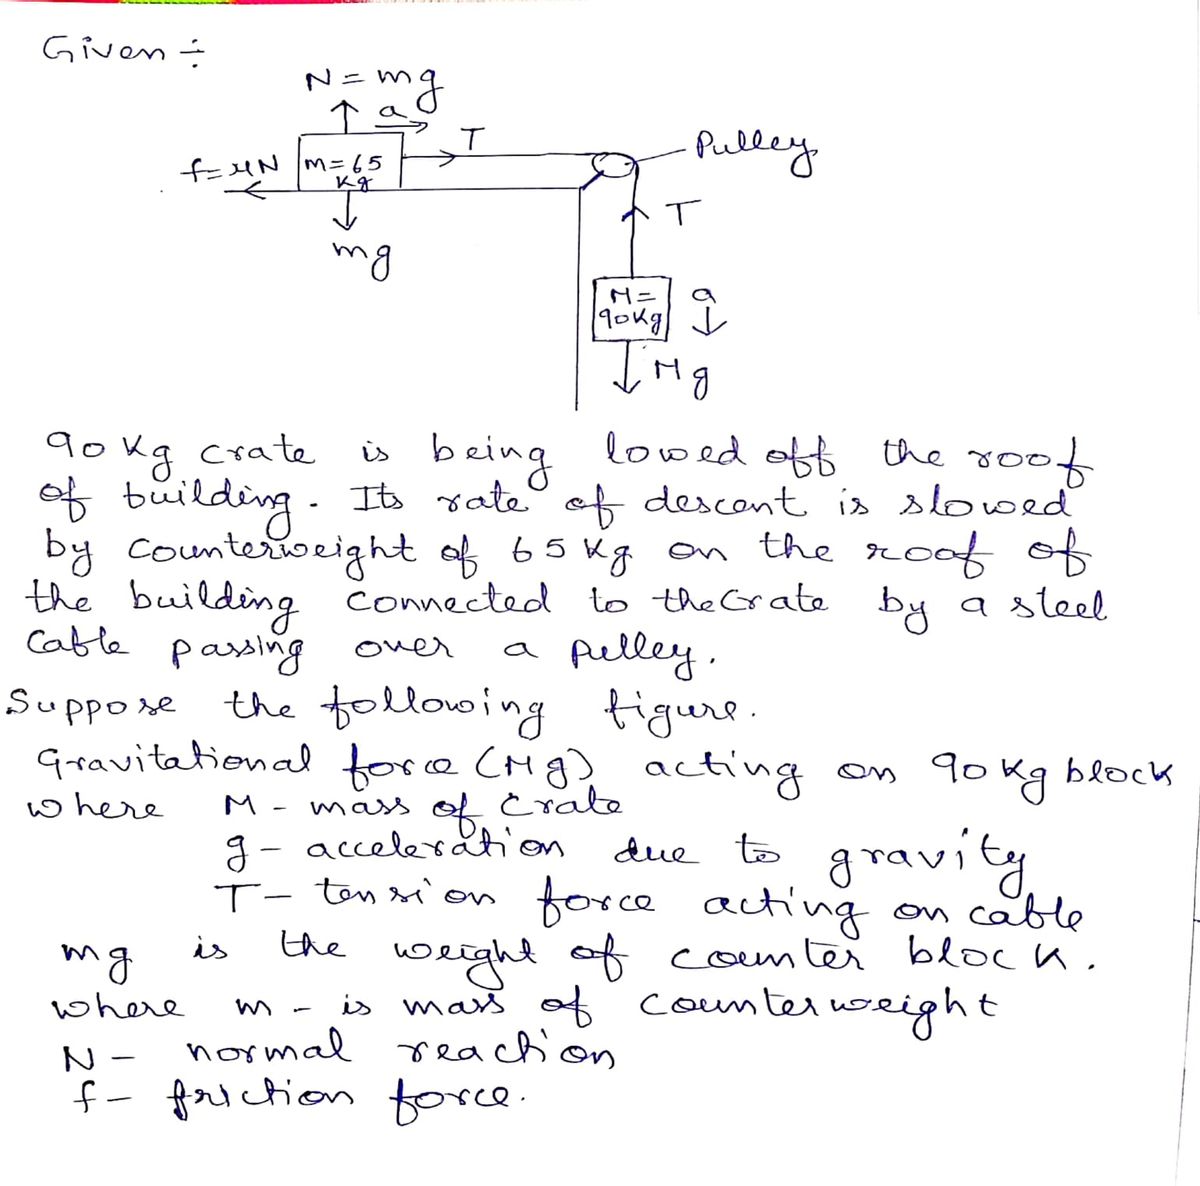 Given ÷
N = mg
a
T
Pulley
f = μN
m = 65
kg
T
mg
M =
90kg
a
Mg
90 kg crate is being lowed off the roof
of building. Its rate of descent is slowed
by counterweight of 65 kg on the roof of
the building connected to the Crate by a steel
Cable passing over a pulley.
Suppose the following figure.
Gravitational force (Mg) acting on 90 kg block
where M - mass of crate
g - acceleration due to gravity
T - tension force acting on cable
mg is the weight of counter block.
where m - is mass of counterweight
N - normal reaction
f - friction force.